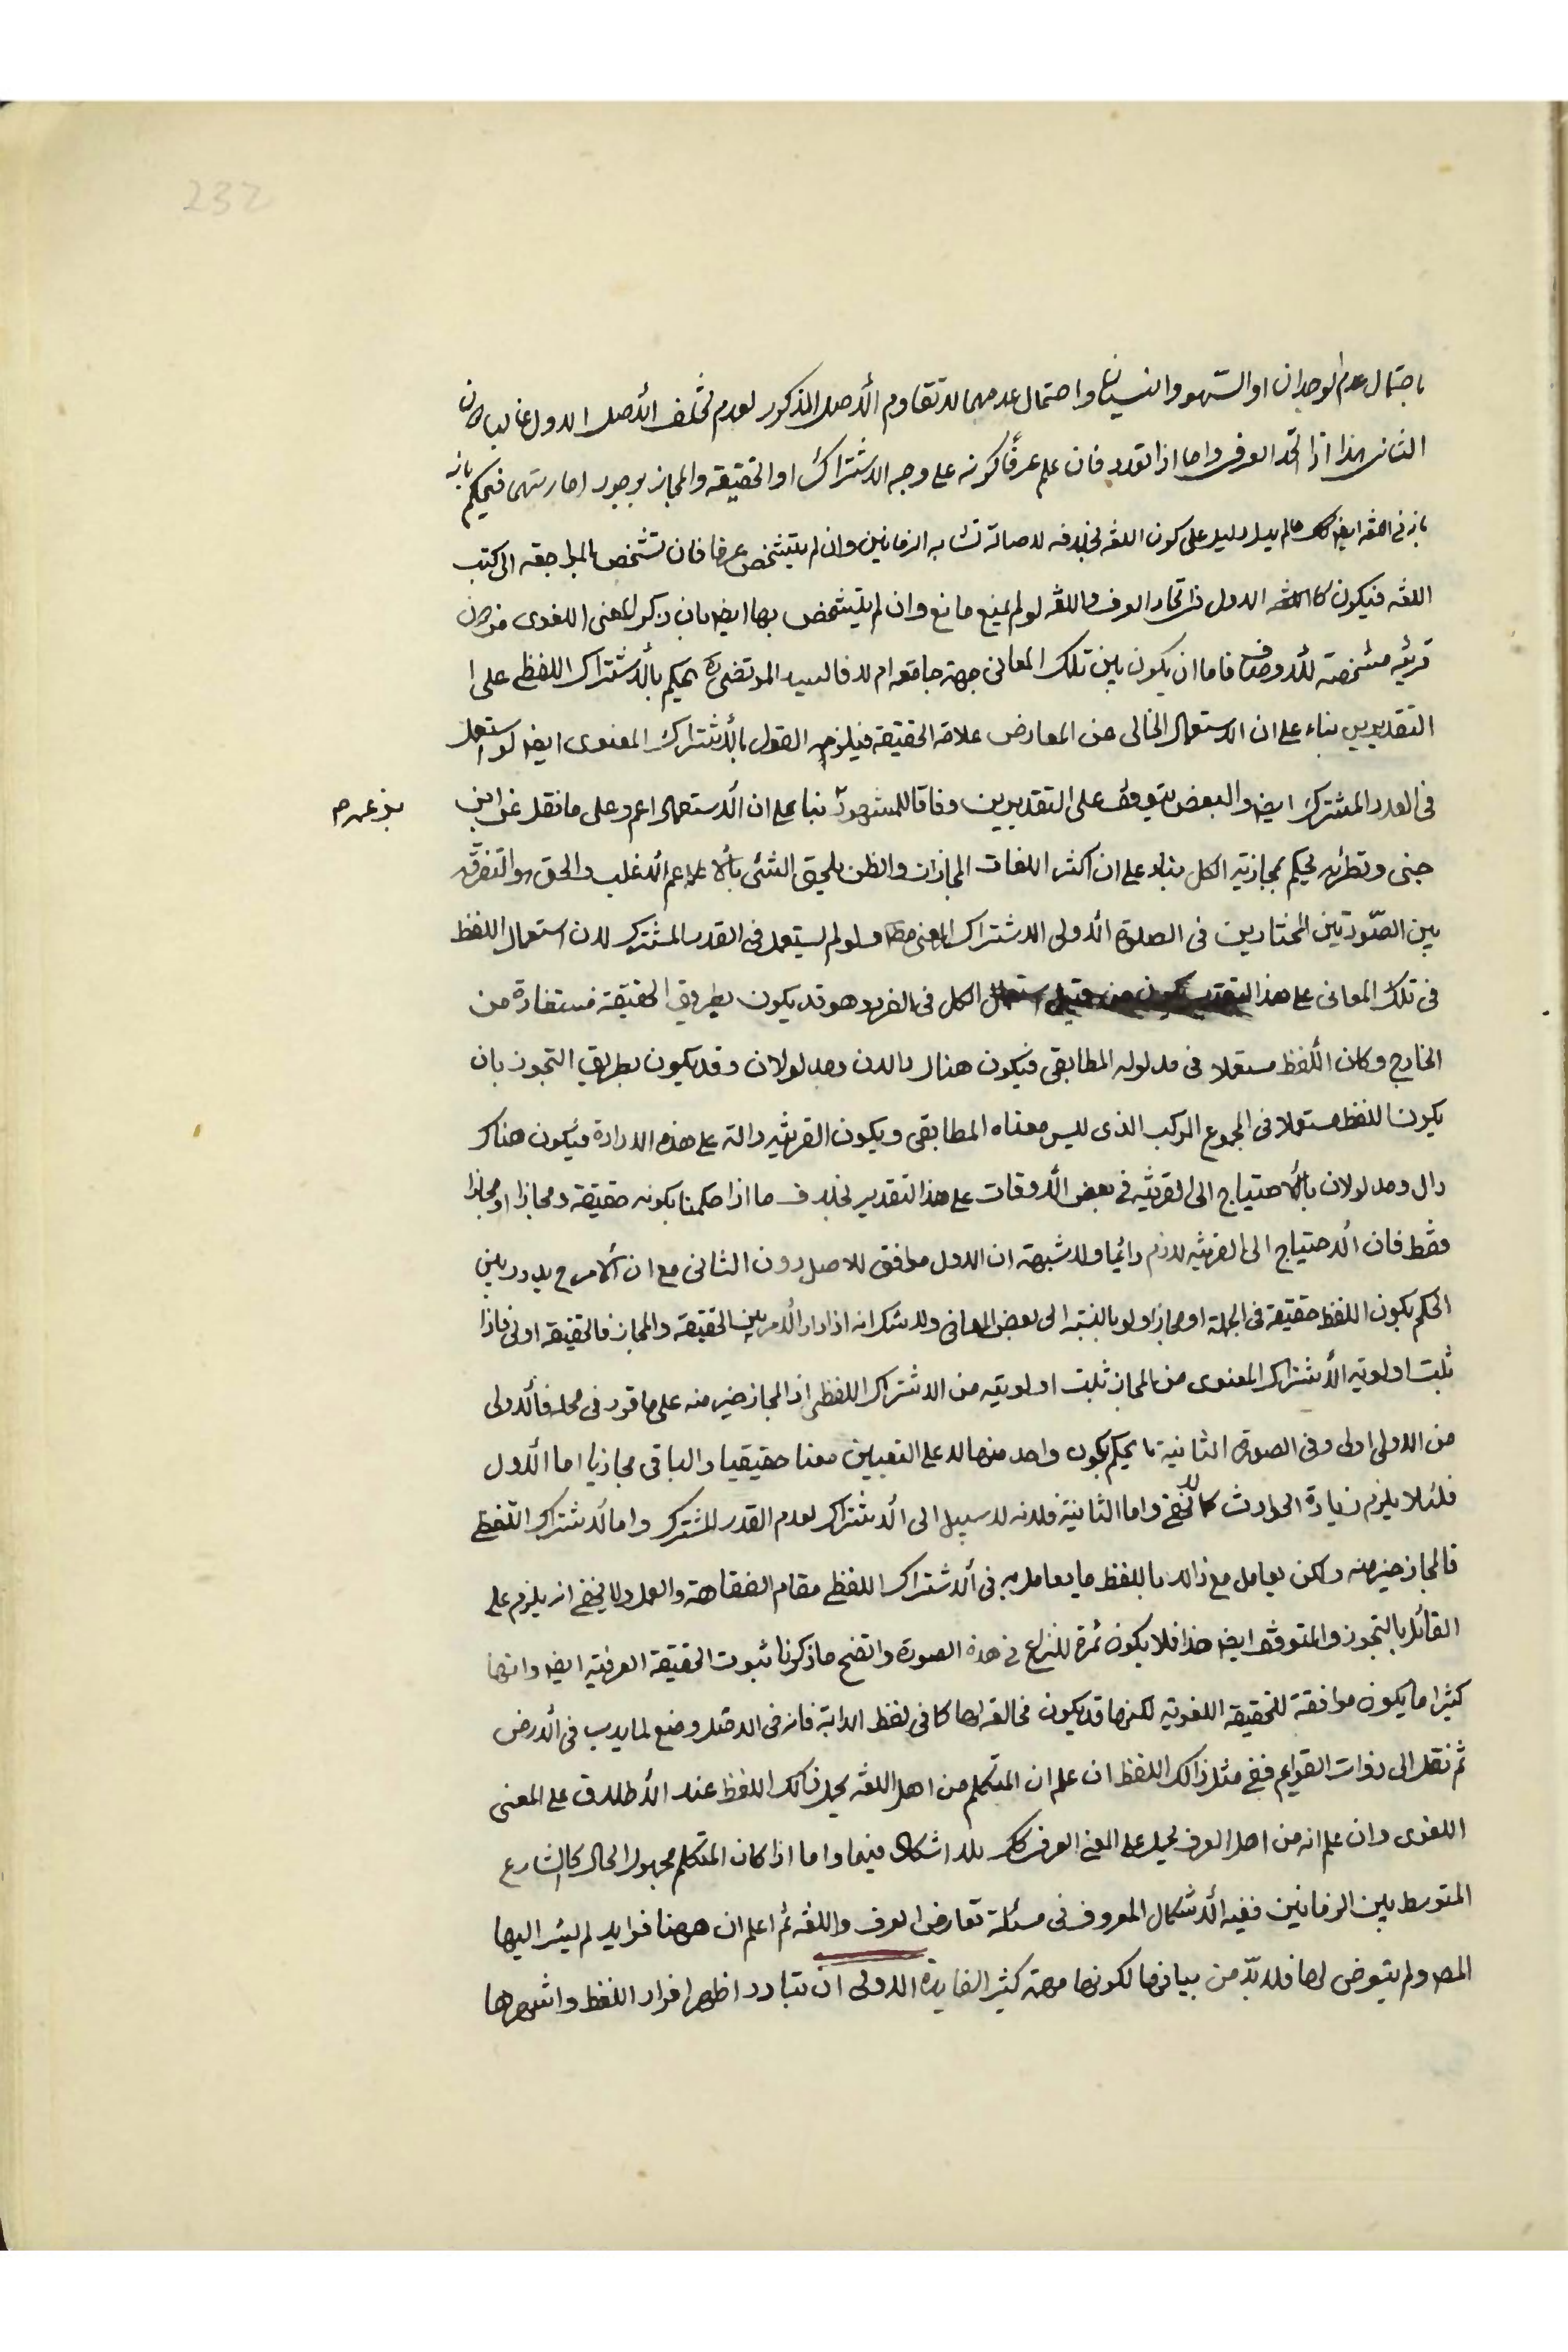 232
باحتمال عدم الوجدان او السهو والنسيان واحتمال عدمهما لا تقاوم الأصل المذكور لعدم تخلف الأصل الاول غالبا دون
الثانی هذا اذا اتحد العرفی واما اذا تعدد فان علم عرفًا كونه على وجه الاشتراك او الحقيقة والمجاز بوجود امارتهما فيحكم بانه
بانه فی اللغة ايضا كك ما لم يدل دليل على كون اللغة بخلافه لاصالة تشابه الزمانين وان لم يتشخص عرفا فان تشخص بالمراجعة الی كتب
اللغة فيكون كالاول فی اتحاد العرف واللغة لو لم يمنع مانع وان لم يتشخص بها ايضا بان ذكر المعنى اللغوی من دون
قرينه مشخصة للأوصاف فاما ان يكون بين تلك المعانى جهة جامعة ام لا فالسيد المرتضى ره يحكم بالأشتراك اللفظی على
التقديرين بناء على ان الاستعمال الخالى عن المعارض علامة الحقيقة فيلزمه القول بالأشتراك المعنوى ايضا لو استعمل
فى القدر المشترك ايضا والبعض يتوقف على التقديرين وفاقا للمشهور بناء على ان الأستعمال اعم وعلى ما نقل عن ابن
بذ عهم
جنى ونظرائه يحكم بمجازية الكل بناء على ان اكثر اللغات المجازات والظن يلحق الشئ بالاعم الأغلب والحق هو التفرقة
بين الصّورتين المختارين فى الصورة الأولى الاشتراك المعنوی ولو لم يستعمل فى القدر المشترك لان استعمال اللفظ
فى تلك المعانى على هذا التقدير يكون من قبيل استعمال الكل فى الفرد وهو قد يكون بطريق الحقيقة مستفادة من
الخارج وكان اللفظ مستعملا فى مدلوله المطابقى فيكون هناك دالان ومدلولان وقد يكون بطريق التجوز بان
يكون اللفظ مستعملا فى المجموع المركب الذى ليس معناه المطابقى ويكون القرينه دالة على هذه الارادة فيكون هناك
دال ومدلولان بالأحتياج الى القرينه فى بعض الأوقات على هذا التقدير بخلاف ما اذا حكمنا بكونه حقيقة ومجازا او مجازا
فقط فان الأحتياج الى القرينه لازم دائما ولا شبهة ان الاول موافق للاصل دون الثانى مع ان الأمر ح يدور بين
الحكم بكون اللفظ حقيقة فى الجملة او مجازا ولو بالنسبة الى بعض المعانى ولا شك انه اذا دار الأمر بين الحقيقة والمجاز فالحقيقة اولى فاذا
ثبت اولوية الأشتراك المعنوى من المجاز ثبت اولويته من الاشتراك اللفظى اذ المجاز خير منه على ما قرر فى محله فالأولى
من الاولى اولى وفى الصورة الثانية ما يحكم بكون واحد منها لا على التعيين معنا حقيقيا والباقى مجازيا اما الأول
فلئلا يلزم زيادة الحوادث كما لا يخفى واما الثانية فلانه لا سبيل الى الأشتراك لعدم القدر المشترك واما الأشتراك اللفظى
فالمجاز خير منه ولكن يعامل مع ذالك باللفظ ما يعامل به فى الأشتراك اللفظى مقام الفقاهة والعمل ولا يخفى انه يلزم على
القائل بالتجوز والمتوقف ايضا هذا فلا يكون ثمرة للنزاع فى هذه الصورة واتضح ما ذكرنا ثبوت الحقيقة العرفية ايضا وانها
كثيرا ما يكون موافقة للحقيقة اللغوية لكنها قد يكون مخالفة لها كما فى لفظ الدابة فانه فى الاصل وضع لما يدب فى الأرض
ثم نقل الى ذوات القوايم ففى مثل ذالك اللفظ ان علم ان المتكلم من اهل اللغة يحمل ذالك اللفظ عند الأطلاق على المعنى
اللغوى وان علم انه من اهل العرف يحمل على المعنى العرفى كك بلا اشكال فيهما واما اذا كان المتكلم مجهول الحال كالشارع
المتوسط بين الزمانين ففيه الأشكال المعروف فى مسئلة تعارض العرف واللغة ثم اعلم ان ههنا فوايد لم يشر اليها
المص ولم يتعرض لها فلا بدّ من بيانها لكونها مهمة كثير الفايدة الاولى ان تبادر اظهر افراد اللفظ واشهرها